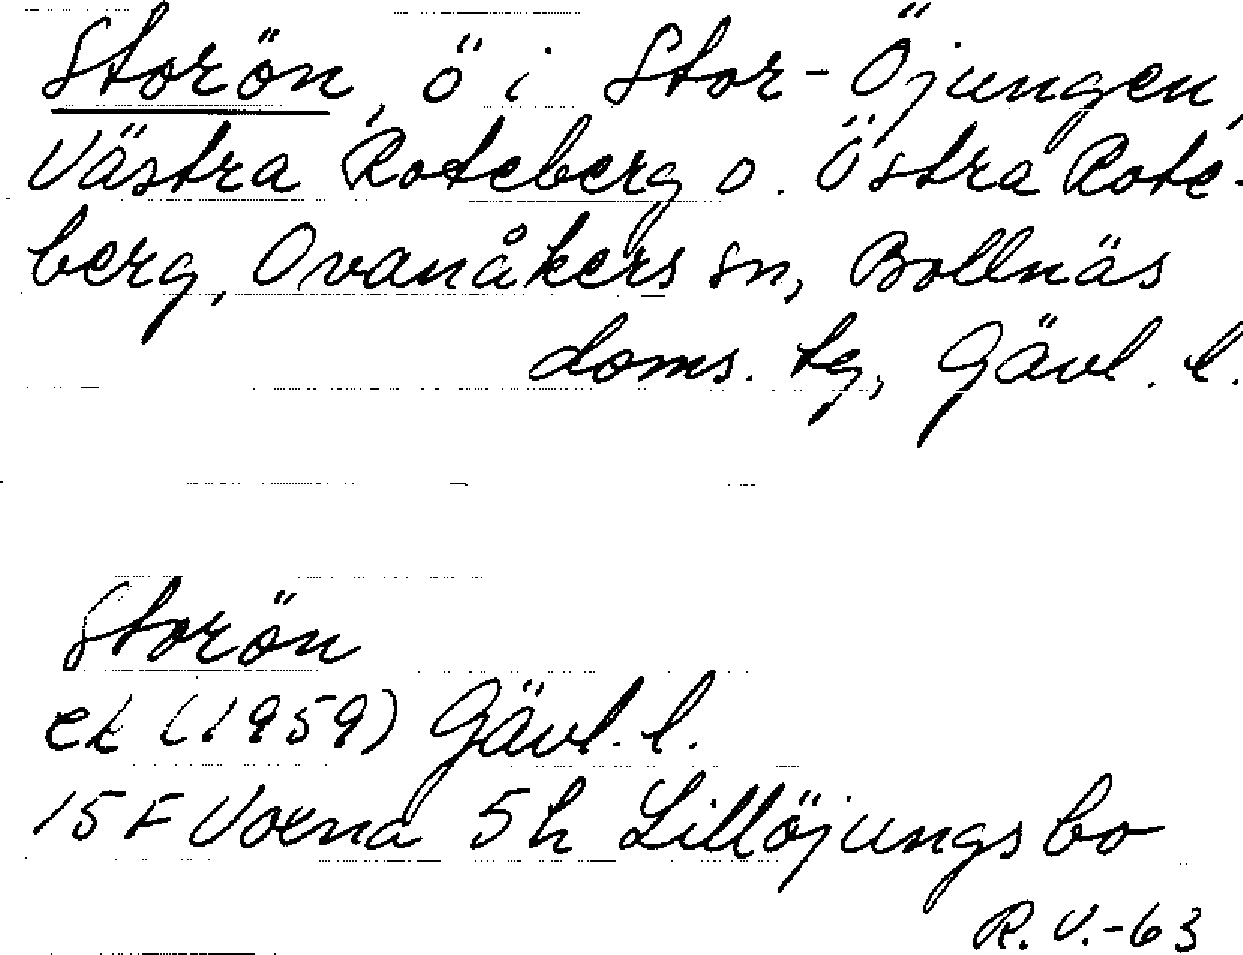 Storön, ö i Stor-Öjungen,
Västra Roteberg o. Östra Rote-
berg, Ovanåkers sn, Bollnäs
doms. tg, Gävl. l.
Storön
ek (1959) Gävl. l.
15 F Voxna 5h Lillöjungsbo
R. V. -63